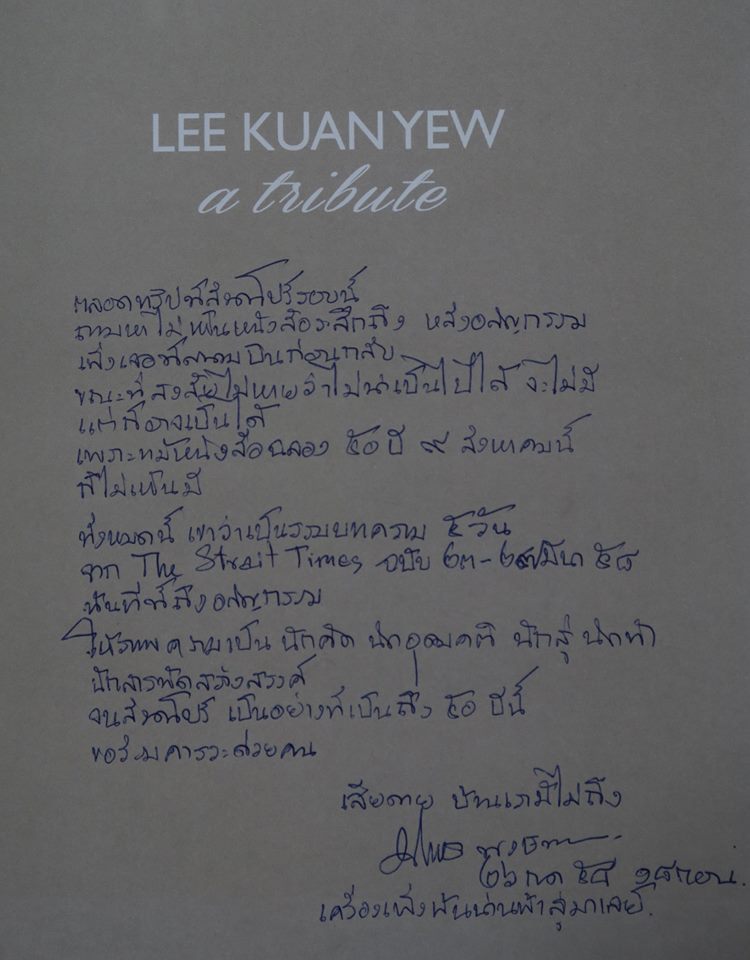 LEE KUAN YEW
a tribute
ตลอดทริปที่สิงคโปร์รอบนี้
ถามหา ไม่เห็นหนังสือระลึกถึง หลังอสัญกรรม
เพิ่งเจอที่สนามบินก่อนกลับ
ขณะที่สงสัยไม่หายว่าไม่น่าเป็นไปได้ จะไม่มี
แต่ก็อาจเป็นได้
เพราะแม้หนังสือฉลอง ๕๐ ปี ๙ สิงหาคมนี้
ก็ไม่เห็นมี
ทั้งหมดนี้ เขาว่าเป็นรวมบทความ ๕ วัน
จาก The Strait Times ฉบับ ๒๓-๒๙ มีนา ๕๘
นับที่ถึงอสัญกรรม
ให้ภาพความเป็น นักคิด นักอุดมคติ นักสู้ นักทำ
นักสารพัดสร้างสรรค์
จนสิงคโปร์ เป็นอย่างที่เป็นถึง ๕๐ ปีนี้
ขอร่วมคารวะด้วยคน
เสียดาย บ้านเรามีไม่ถึง
๒๖ กค ๕๘
เครื่องเพิ่งพ้นน่านฟ้าสู่มาเลย์.